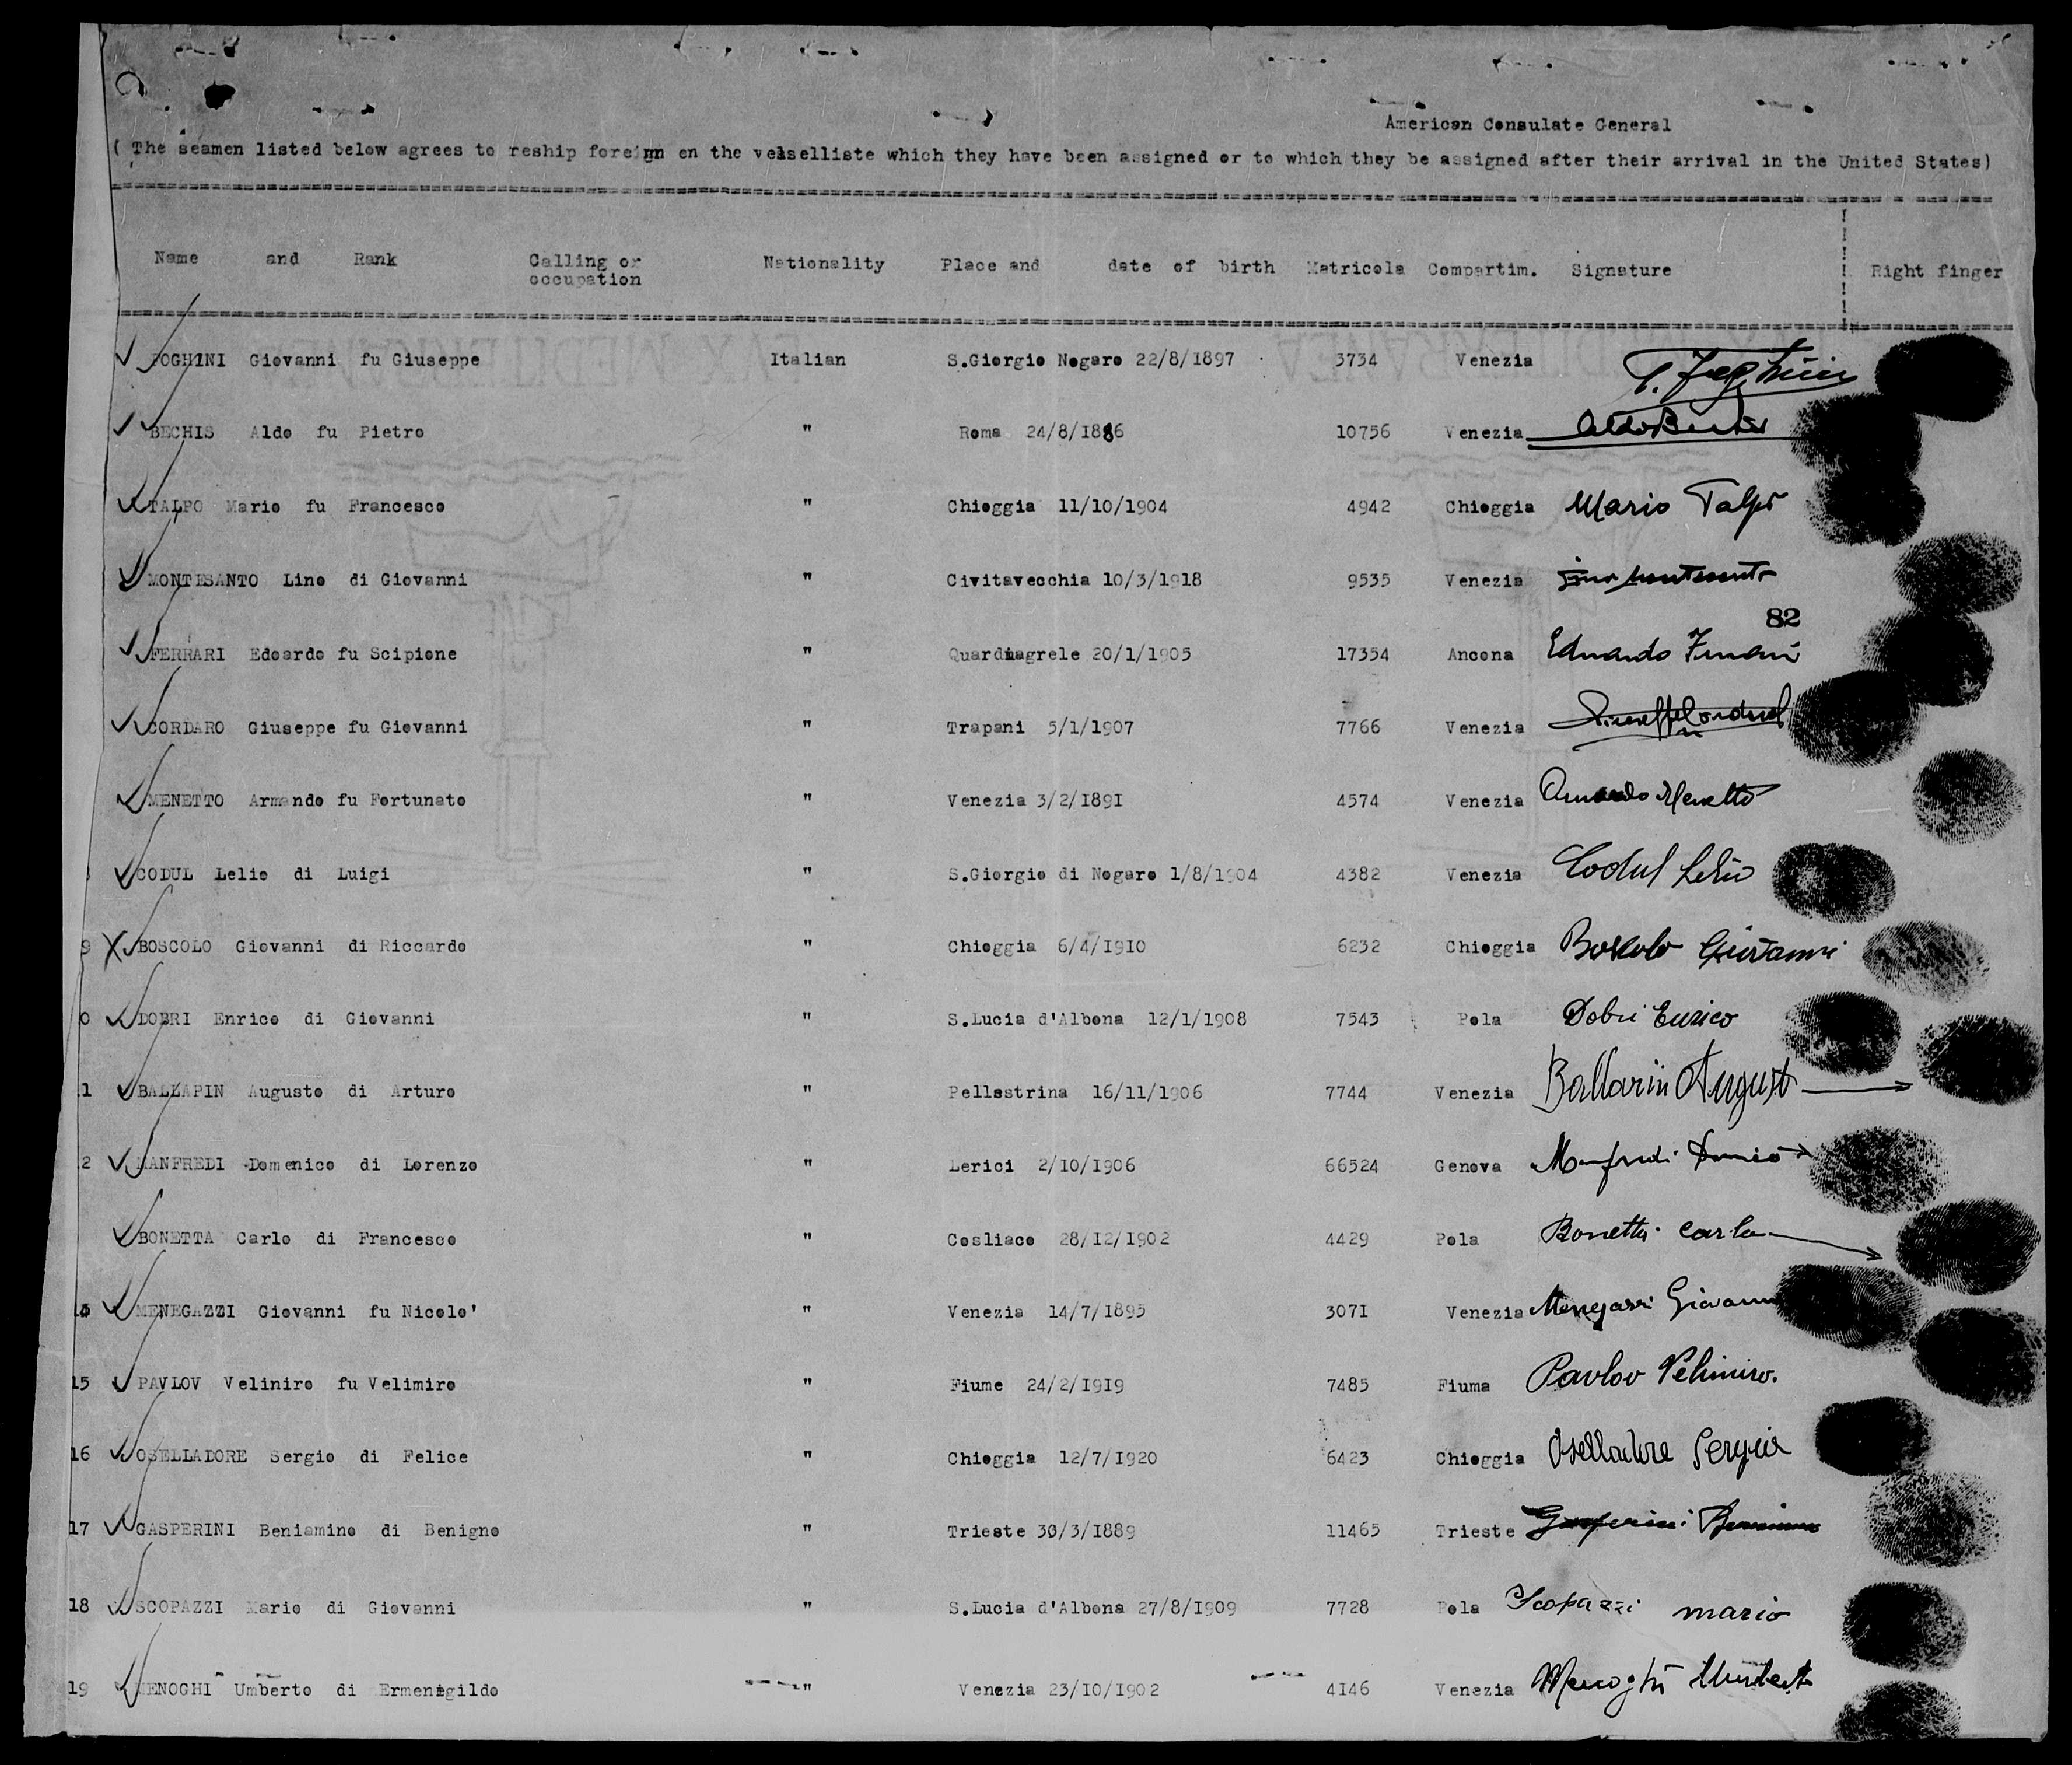 American Consulate General
( The seamen listed below agrees to reship foreign en the velselliste which they have been assigned or to which they be assigned after their arrival in the United States)
Name and Rank Calling or occupation Nationality Place and date of birth Matricola Compartim. Signature Right finger
FOGHINI Giovanni fu Giuseppe Italian S.Giorgio Nogaro 22/8/1897 3734 Venezia
BECHIS Aldo fu Pietro " Roma 24/8/1886 10756 Venezia Aldo Bechis
TALPO Mario fu Francesco " Chioggia 11/10/1904 4942 Chioggia Mario Talpo
MONTESANTO Lino di Giovanni " Civitavecchia 10/3/1918 9535 Venezia Lino Montesanto
82
FERRARI Edoardo fu Scipione " Quardiagrele 20/1/1905 17354 Ancona Eduardo Ferrari
CORDARO Giuseppe fu Giovanni " Trapani 5/1/1907 7766 Venezia
MENETTO Armando fu Fortunato " Venezia 3/2/1891 4574 Venezia Armando Menetto
CODUL Lelio di Luigi " S.Giorgio di Nogaro 1/8/1904 4382 Venezia Codul Lelio
9 BOSCOLO Giovanni di Riccardo " Chioggia 6/4/1910 6232 Chioggia Boscolo Giovanni
0 DOBRI Enrico di Giovanni " S.Lucia d'Albona 12/1/1908 7543 Pola Dobri Enrico
1 BALLAPIN Augusto di Arturo " Pellestrina 16/11/1906 7744 Venezia Ballarin August
2 MANFREDI Domenico di Lorenzo " Lerici 2/10/1906 66524 Genova Manfredi
BONETTA Carlo di Francesco " Cosliaco 28/12/1902 4429 Pola Bonetta Carlo
14 MENEGAZZI Giovanni fu Nicolo' " Venezia 14/7/1895 3071 Venezia Menegazzi Giovanni
15 PAVLOV Veliniro fu Velimiro " Fiume 24/2/1919 7485 Fiuma Pavlov Velimiro.
16 OSELLADORE Sergio di Felice " Chioggia 12/7/1920 6423 Chioggia Oselladore Sergio
17 GASPERINI Beniamino di Benigno " Trieste 30/3/1889 11465 Trieste Gasperini Beniamino
18 SCOPAZZI Mario di Giovanni " S.Lucia d'Albona 27/8/1909 7728 Pola Scopazzi mario
19 MENOGHI Umberto di Ermenegildo " Venezia 23/10/1902 4146 Venezia Menoghi Umberto